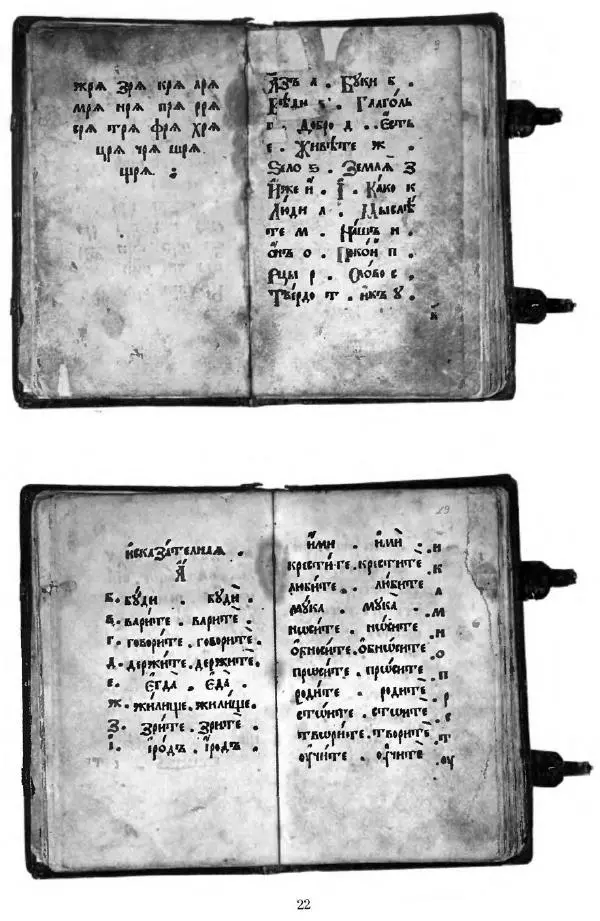 жрѧ зрѧ крѧ лрѧ
мрѧ нрѧ прѧ ррѧ
срѧ трѧ фрѧ хрѧ
црѧ чрѧ шрѧ
щрѧ .
Азъ а . Буки б .
Вѣди в . Глаголь
г . Добро д . Єсть
е . Живѣте ж .
Ѕело ѕ . Земля З
Иже и . І . Како к
Люди л . Мыслѣ
те м . Нашъ н .
онъ о . Покои п .
Рцы р . Слово с .
Твердо т . икъ у .
исказателная .
А
Б . буди . буди .
в . варите . варите .
г . говорите . говорите .
д . держите . держите .
е . Єгда . Єда .
ж . жилище . жилище .
З . Зрите . Зрите .
і . іродъ . іродъ .
29
ими . ими . и
крестите . крестите . к
любите . любите . л
мука . мука . м
нѡсите . нѡсите . н
обносите . обнѡсите . о
прѡсите . прѡсите . п
родите . родите . р
стѡите . стѡите . с
творите . творите . т
оучите . оучите . оу
22